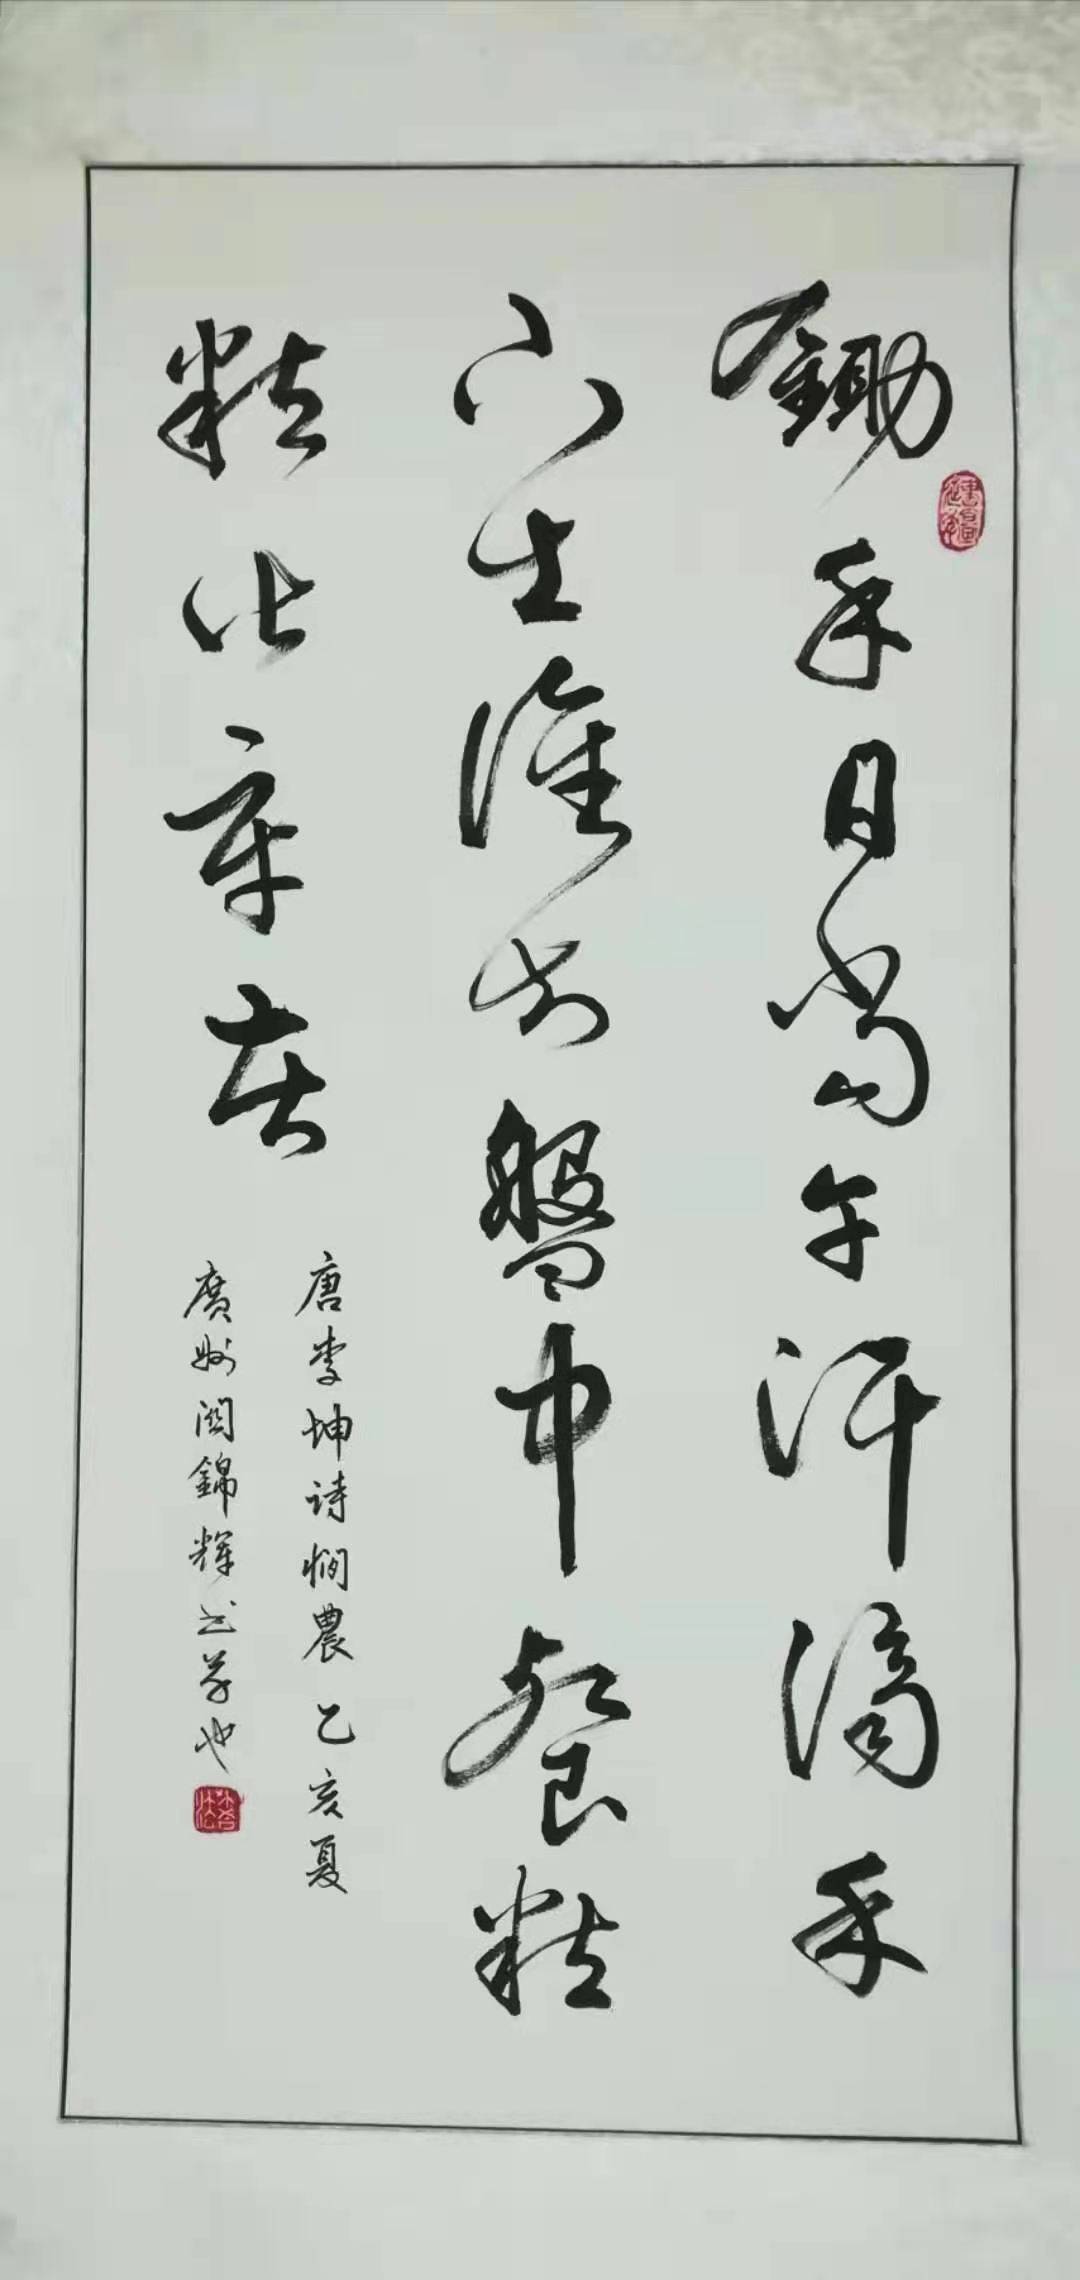 鋤禾日當午汗滴禾
下土誰知盤中餐粒
粒皆辛苦
唐李坤诗悯農乙亥夏
廣州闵錦輝书学也